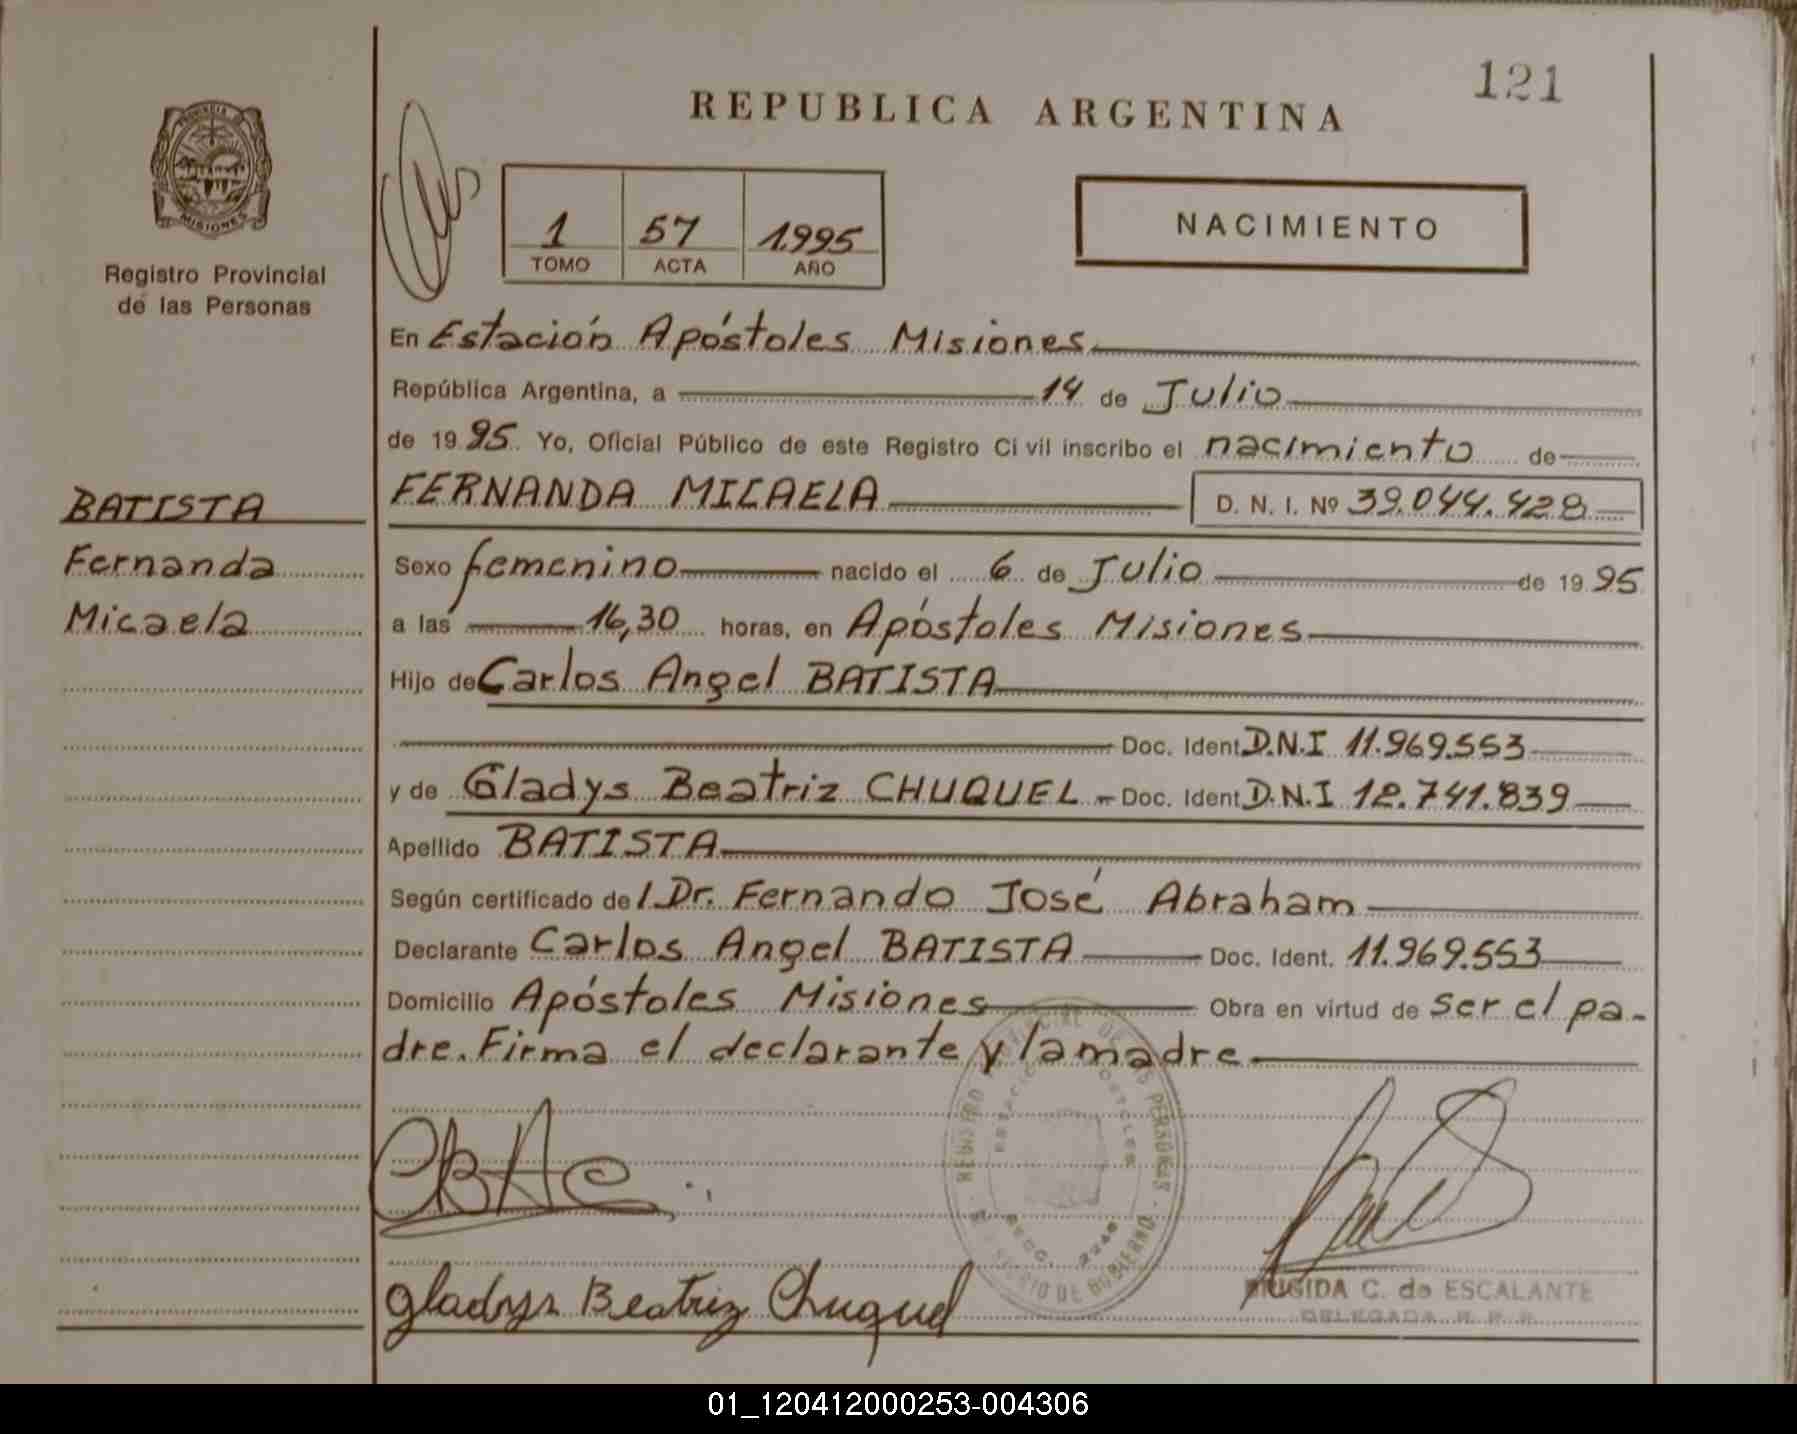 121
REPUBLICA ARGENTINA
PROVINCIA
MISIONES
Registro Provincial
de las Personas
1 57 1995
TOMO ACTA AÑO
NACIMIENTO
En Estación Apóstoles Misiones
República Argentina, a 14 de Julio
de 1995. Yo, Oficial Público de este Registro Civil inscribo el nacimiento de
BATISTA
Fernanda
Micaela
FERNANDA MICAELA D. N. I. Nº 39.044.428
Sexo femenino nacido el 6 de Julio de 1995
a las 16,30 horas, en Apóstoles Misiones
Hijo de Carlos Angel BATISTA
Doc. Ident D.N.I 11.969.553
y de Gladys Beatriz CHUQUEL Doc. Ident D.N.I 12.741.839
Apellido BATISTA
Según certificado de l Dr. Fernando José Abraham
Declarante Carlos Angel BATISTA Doc. Ident. 11.969.553
Domicilio Apóstoles Misiones Obra en virtud de ser el pa-
dre. Firma el declarante y la madre
REGISTRO DE LAS PERSONAS
MINISTERIO DE GOBIERNO
Gladys Beatriz Chuquel
BRIGIDA C. de ESCALANTE
DELEGADA R. P. P.
01_120412000253-004306